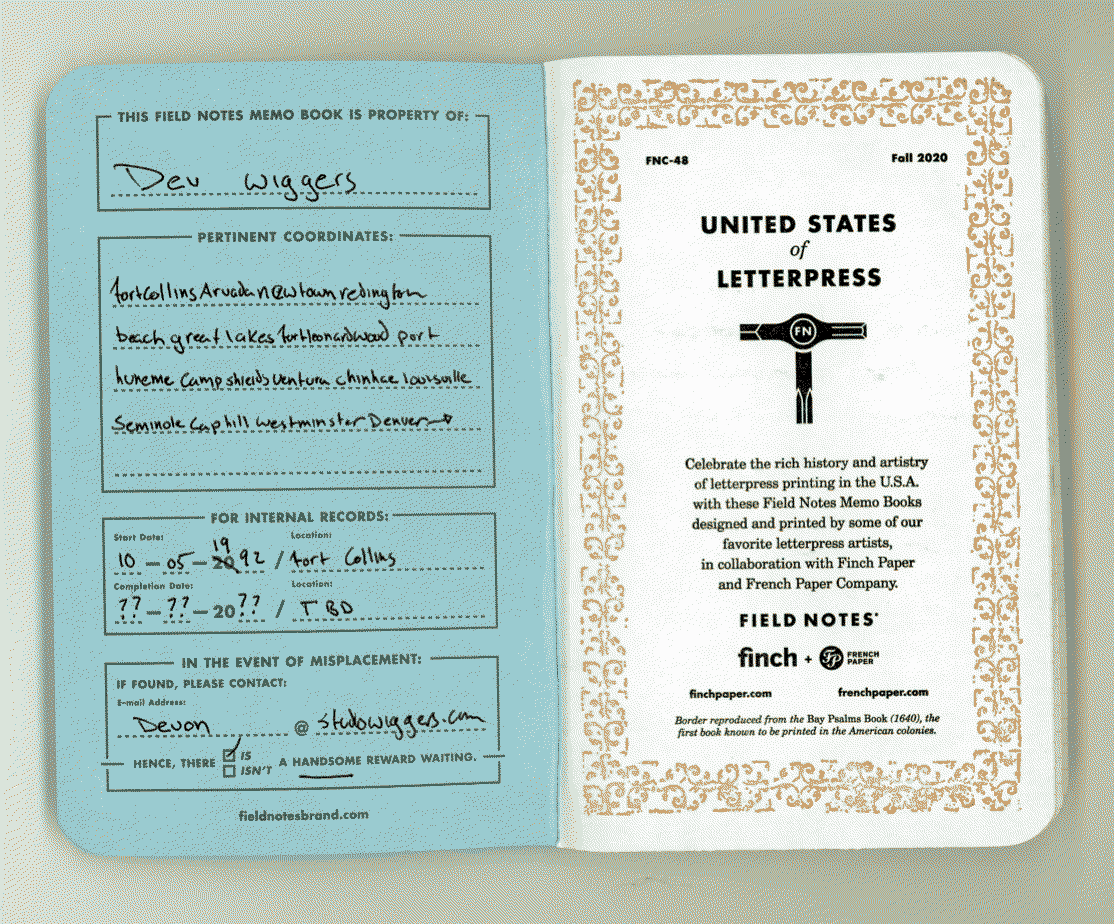 THIS FIELD NOTES MEMO BOOK IS PROPERTY OF:
Dev Wiggers
PERTINENT COORDINATES:
fortCollins Arvada newtown redington
beach great lakes fortleonardwood port
hueneme Camp shields Ventura chinhae louisville
Seminole Caphill Westminster Denver→
FOR INTERNAL RECORDS:
Start Date: Location:
10 — 05 — 20 19 92 / fort Collins
Completion Date: Location:
?? — ?? — 20 ?? / TBD
IN THE EVENT OF MISPLACEMENT:
IF FOUND, PLEASE CONTACT:
E-mail Address:
Devon @ studowiggers.com
HENCE, THERE IS ISN'T A HANDSOME REWARD WAITING.
fieldnotesbrand.com
FNC-48 Fall 2020
UNITED STATES
of
LETTERPRESS
FN
Celebrate the rich history and artistry
of letterpress printing in the U.S.A.
with these Field Notes Memo Books
designed and printed by some of our
favorite letterpress artists,
in collaboration with Finch Paper
and French Paper Company.
FIELD NOTES®
finch + FP FRENCH PAPER
finchpaper.com frenchpaper.com
Border reproduced from the Bay Psalms Book (1640), the
first book known to be printed in the American colonies.